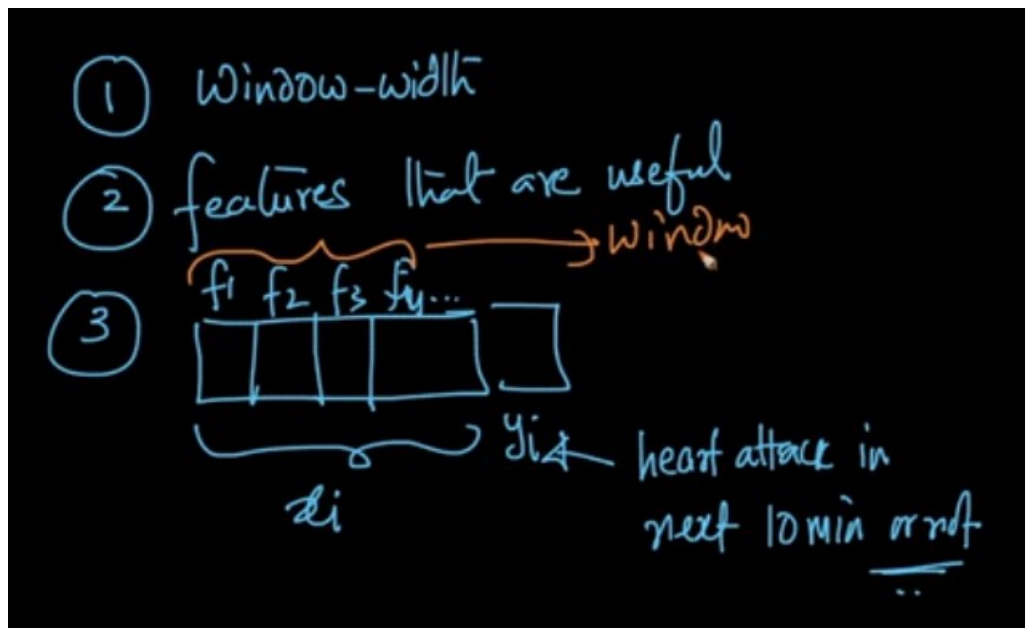 1 Window-width
2 features that are useful
window
3 f1 f2 f3 f4...
xi yi heart attack in
next 10 min or not